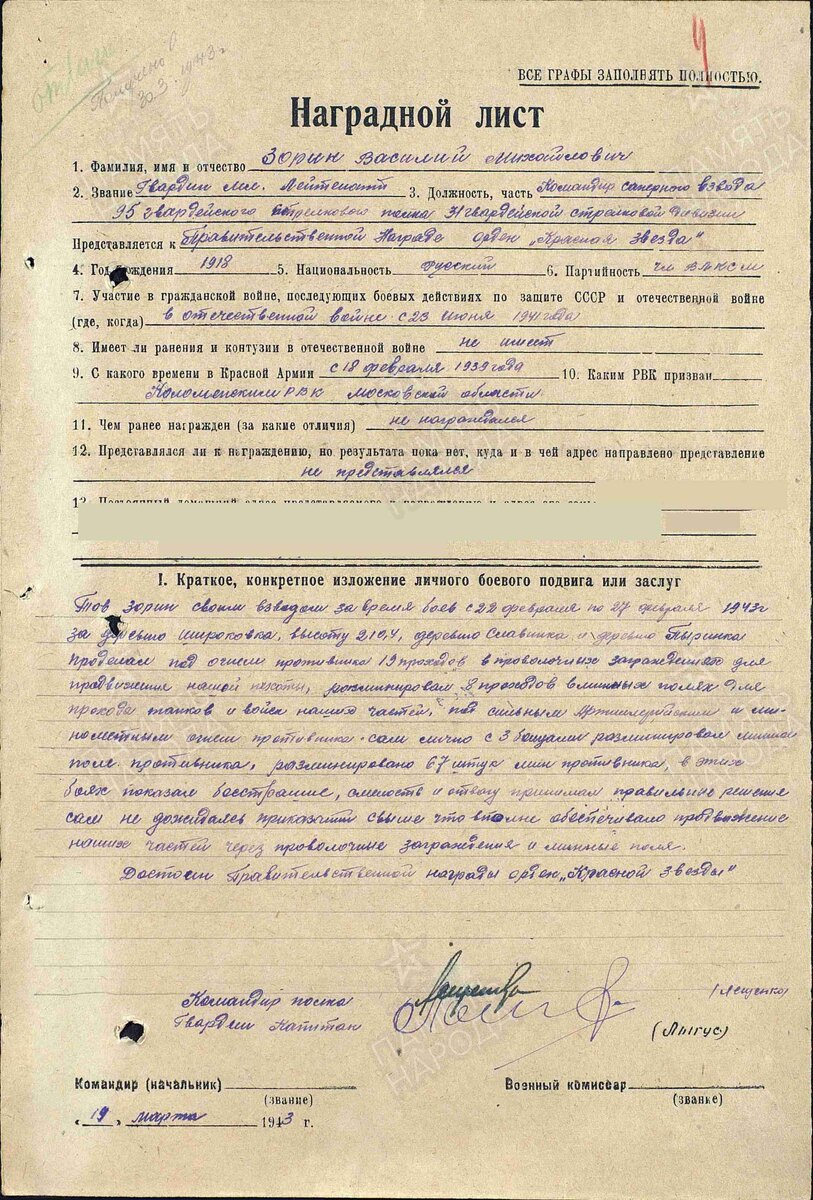 4
30.3.1943 г
ВСЕ ГРАФЫ ЗАПОЛНЯТЬ ПОЛНОСТЬЮ.
Наградной лист
1. Фамилия, имя и отчество Зорин Василий Михайлович
2. Звание Гвардии мл. Лейтенант 3. Должность, часть Командир саперного взвода
95 гвардейского стрелкового полка 31 гвардейской стрелковой дивизии
Представляется к Правительственной Награде орден „Красная звезда"
4. Год рождения 1918 5. Национальность Русский 6. Партийность чл ВЛКСМ
7. Участие в гражданской войне, последующих боевых действиях по защите СССР и отечественной войне
(где, когда) в отечественной войне с 23 июня 1941 года
8. Имеет ли ранения и контузии в отечественной войне не имеет
9. С какого времени в Красной Армии с 18 февраля 1939 года 10. Каким РВК призван
Коломенским РВК Московской области
11. Чем ранее награжден (за какие отличия) не награждался
12. Представлялся ли к награждению, но результата пока нет, куда и в чей адрес направлено представление
не представлялся
I. Краткое, конкретное изложение личного боевого подвига или заслуг
Тов Зорин своим взводом за время боев с 22 февраля по 27 февраля 1943г
за деревню Широковка, высоту 210,4, деревню Славинка и деревню Пыринка
проделал под огнем противника 19 проходов в проволочных заграждениях для
продвижения нашей пехоты, разминировал 8 проходов в минных полях для
прохода танков и войск наших частей, под сильным Артиллерийским и ми-
нометным огнем противника сам лично с 3 бойцами разминировал минное
поле противника, разминировано 67 штук мин противника, в этих
боях показал бесстрашие, смелость и отвагу принимал правильные решения
сам не дожидаясь приказаний свыше что вполне обеспечивало продвижение
наших частей через проволочные заграждения и минные поля.
Достоин Правительственной награды орден „Красной звезды"
Командир полка
Гвардии Капитан
(Лещенко)
(Лыгус)
Командир (начальник) Военный комиссар
(звание) (звание)
„19„ марта 1943 г.
ПАМЯТЬ НАРОДА